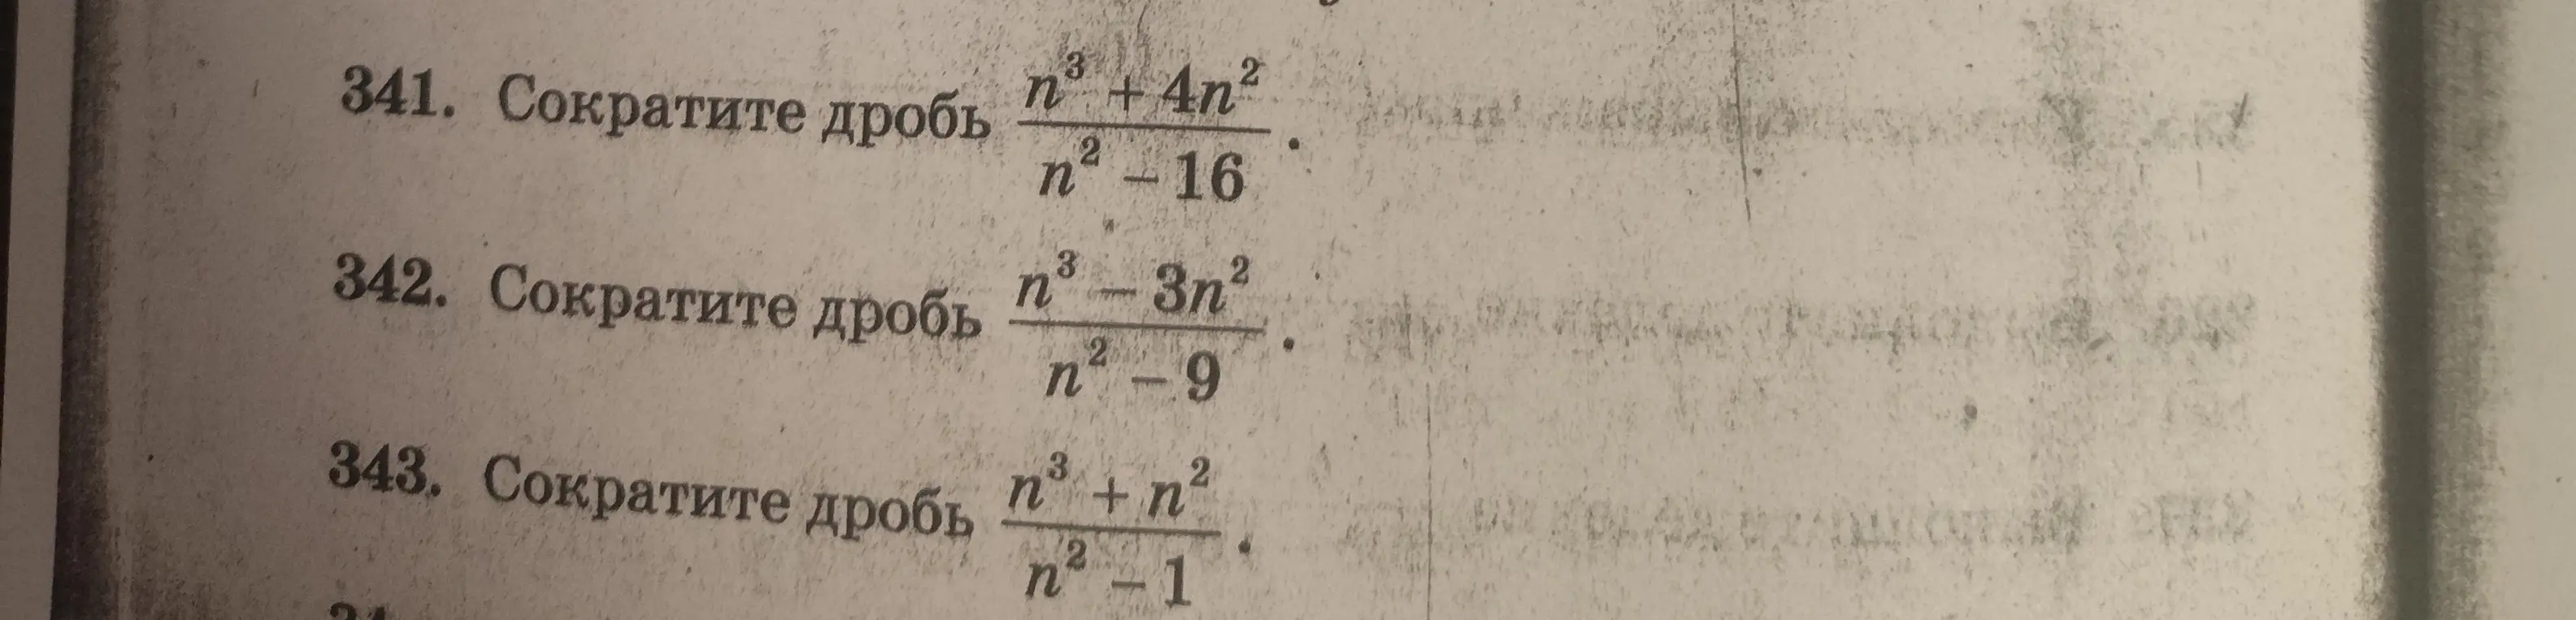 341. Сократите дробь (n³ + 4n²)/(n² – 16).
342. Сократите дробь (n³ – 3n²)/(n² – 9).
343. Сократите дробь (n³ + n²)/(n² – 1).